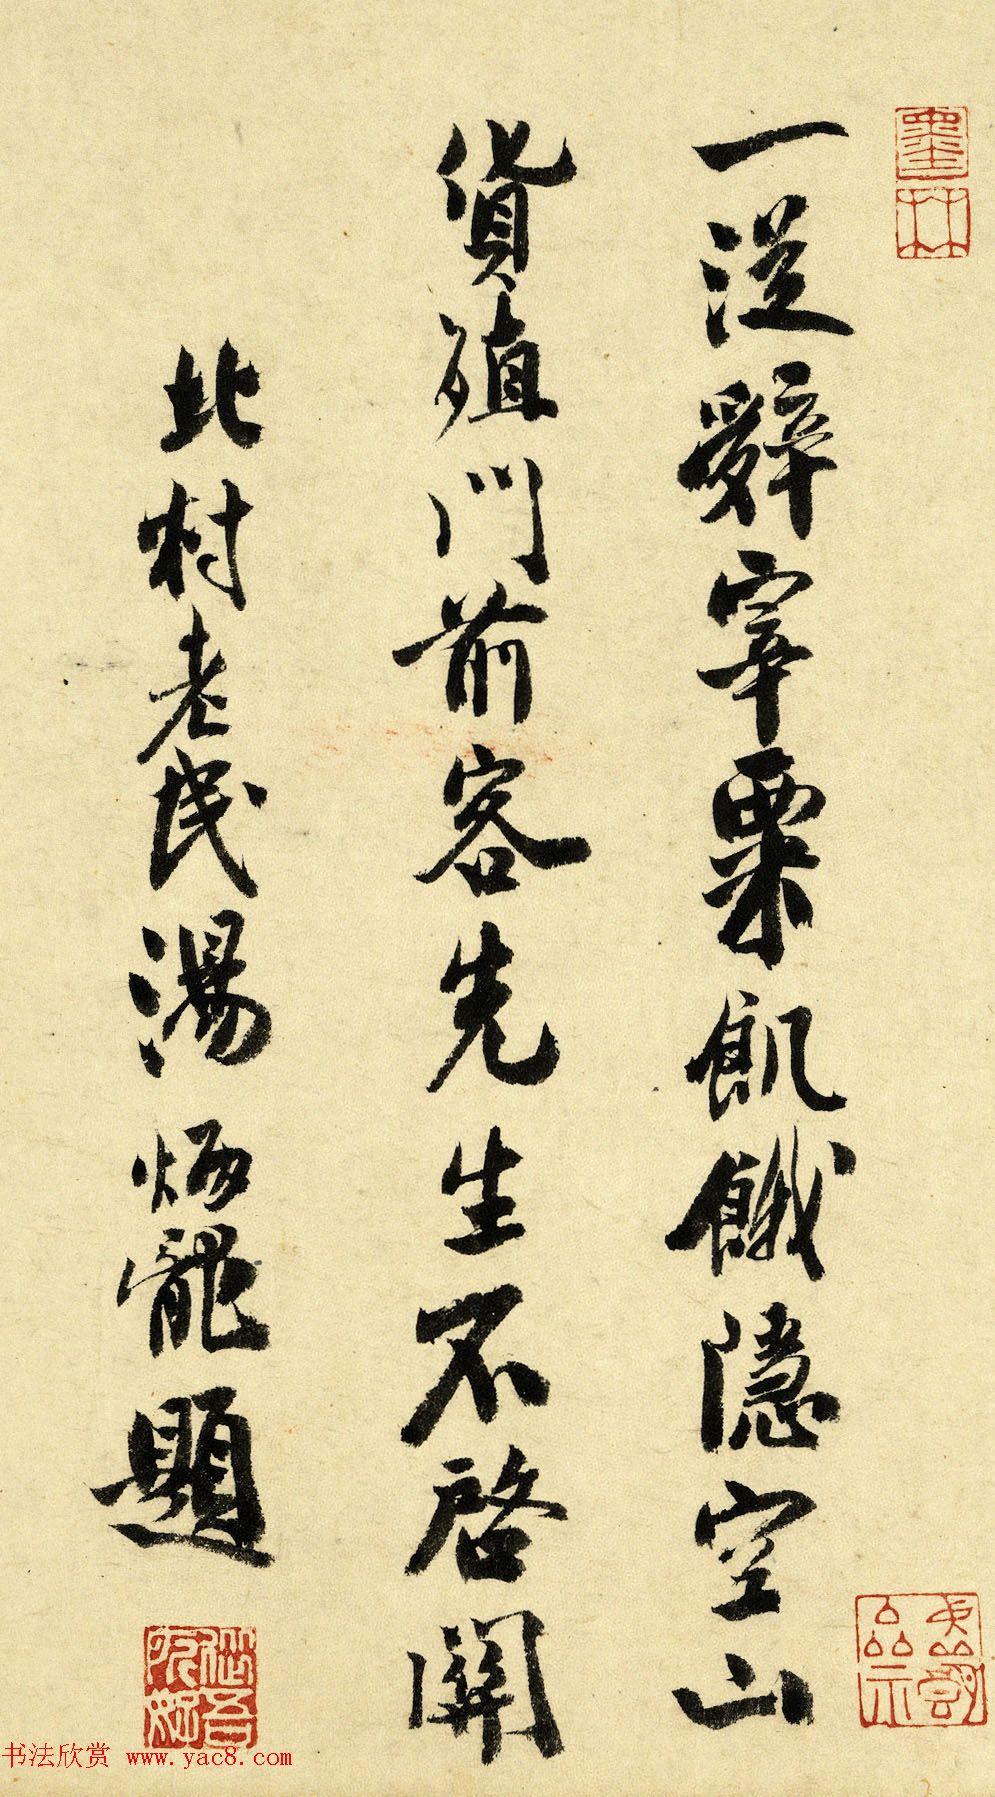 一從辭宰粟飢餓隱空山
貨殖門前客先生不啓關
北村老民湯炳龍題
書法欣赏 www.yac8.com